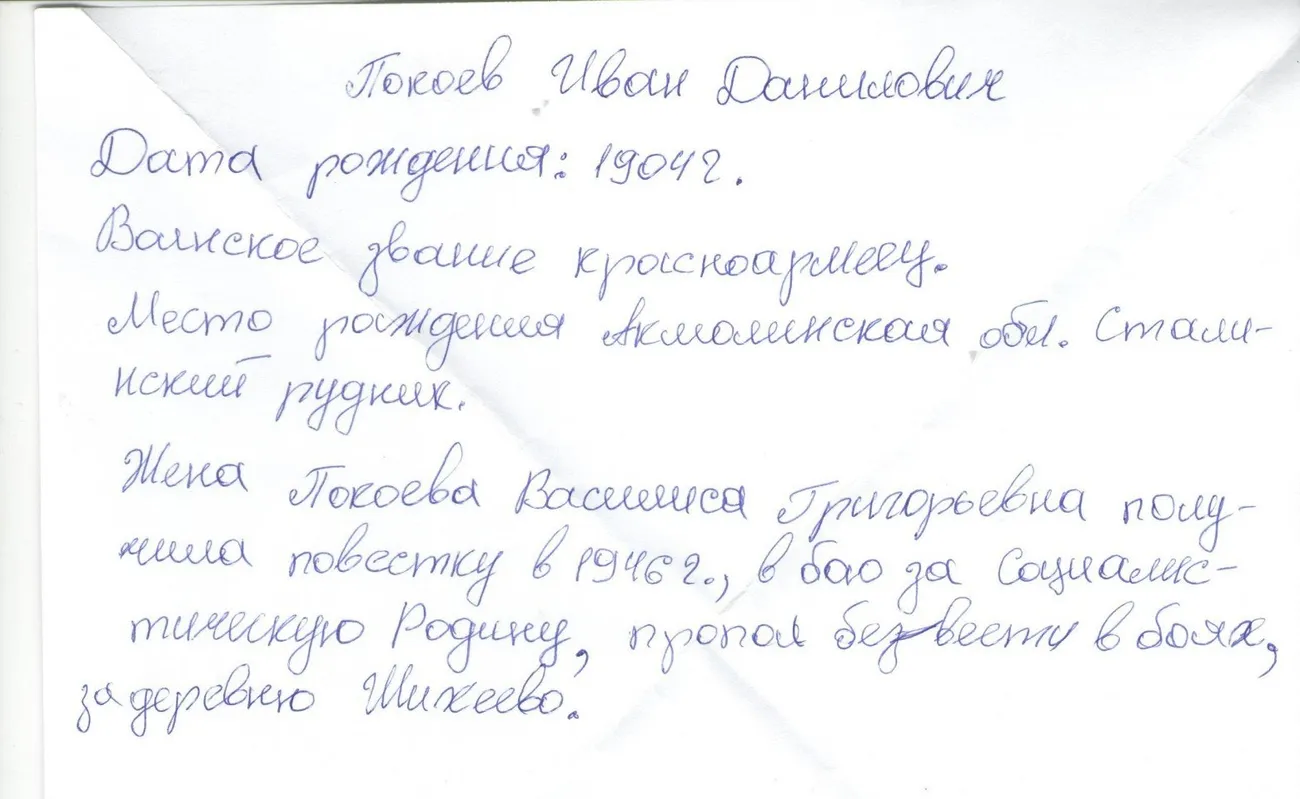 Покоев Иван Данилович
Дата рождения: 1904г.
Воинское звание красноармеец.
Место рождения Акмолинская обл. Стали-
нский рудник.
Жена Покоева Василиса Григорьевна полу-
чила повестку в 1946г., в бою за Социалис-
тическую Родину, пропал без вести в боях,
за деревню Шихеево.